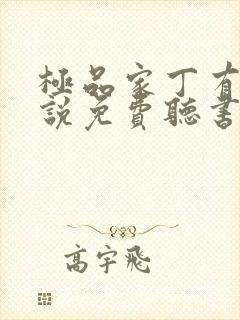 極品家丁有
說免費聽書
高宇飛